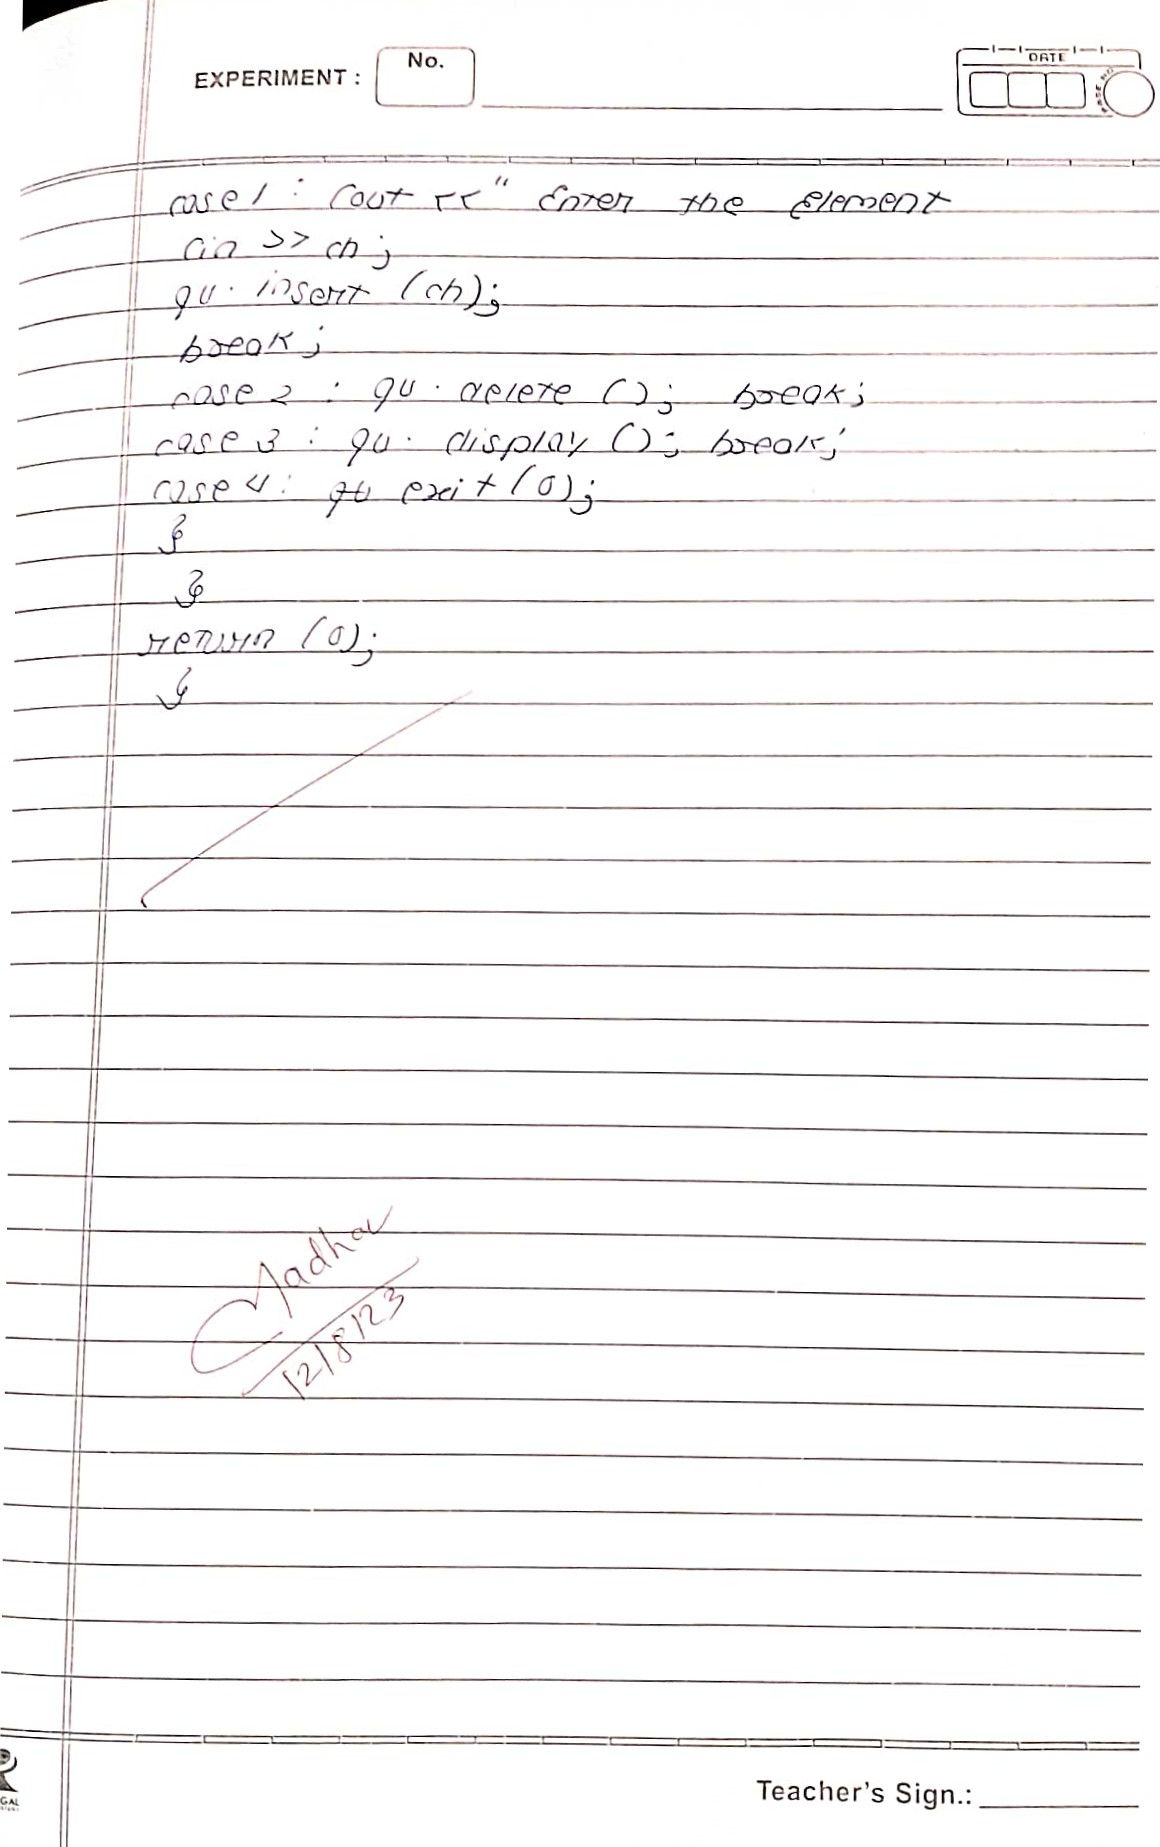 EXPERIMENT :
No.
DATE
case 1 : Cout << " Enter the element
cin >> ch;
qu. insert (ch);
break;
case 2 : qu. delete (); break;
case 3 : qu. display (); break;
case 4 : exit (0);
}
}
return (0);
}
12/8/23
GAL
Teacher's Sign.: